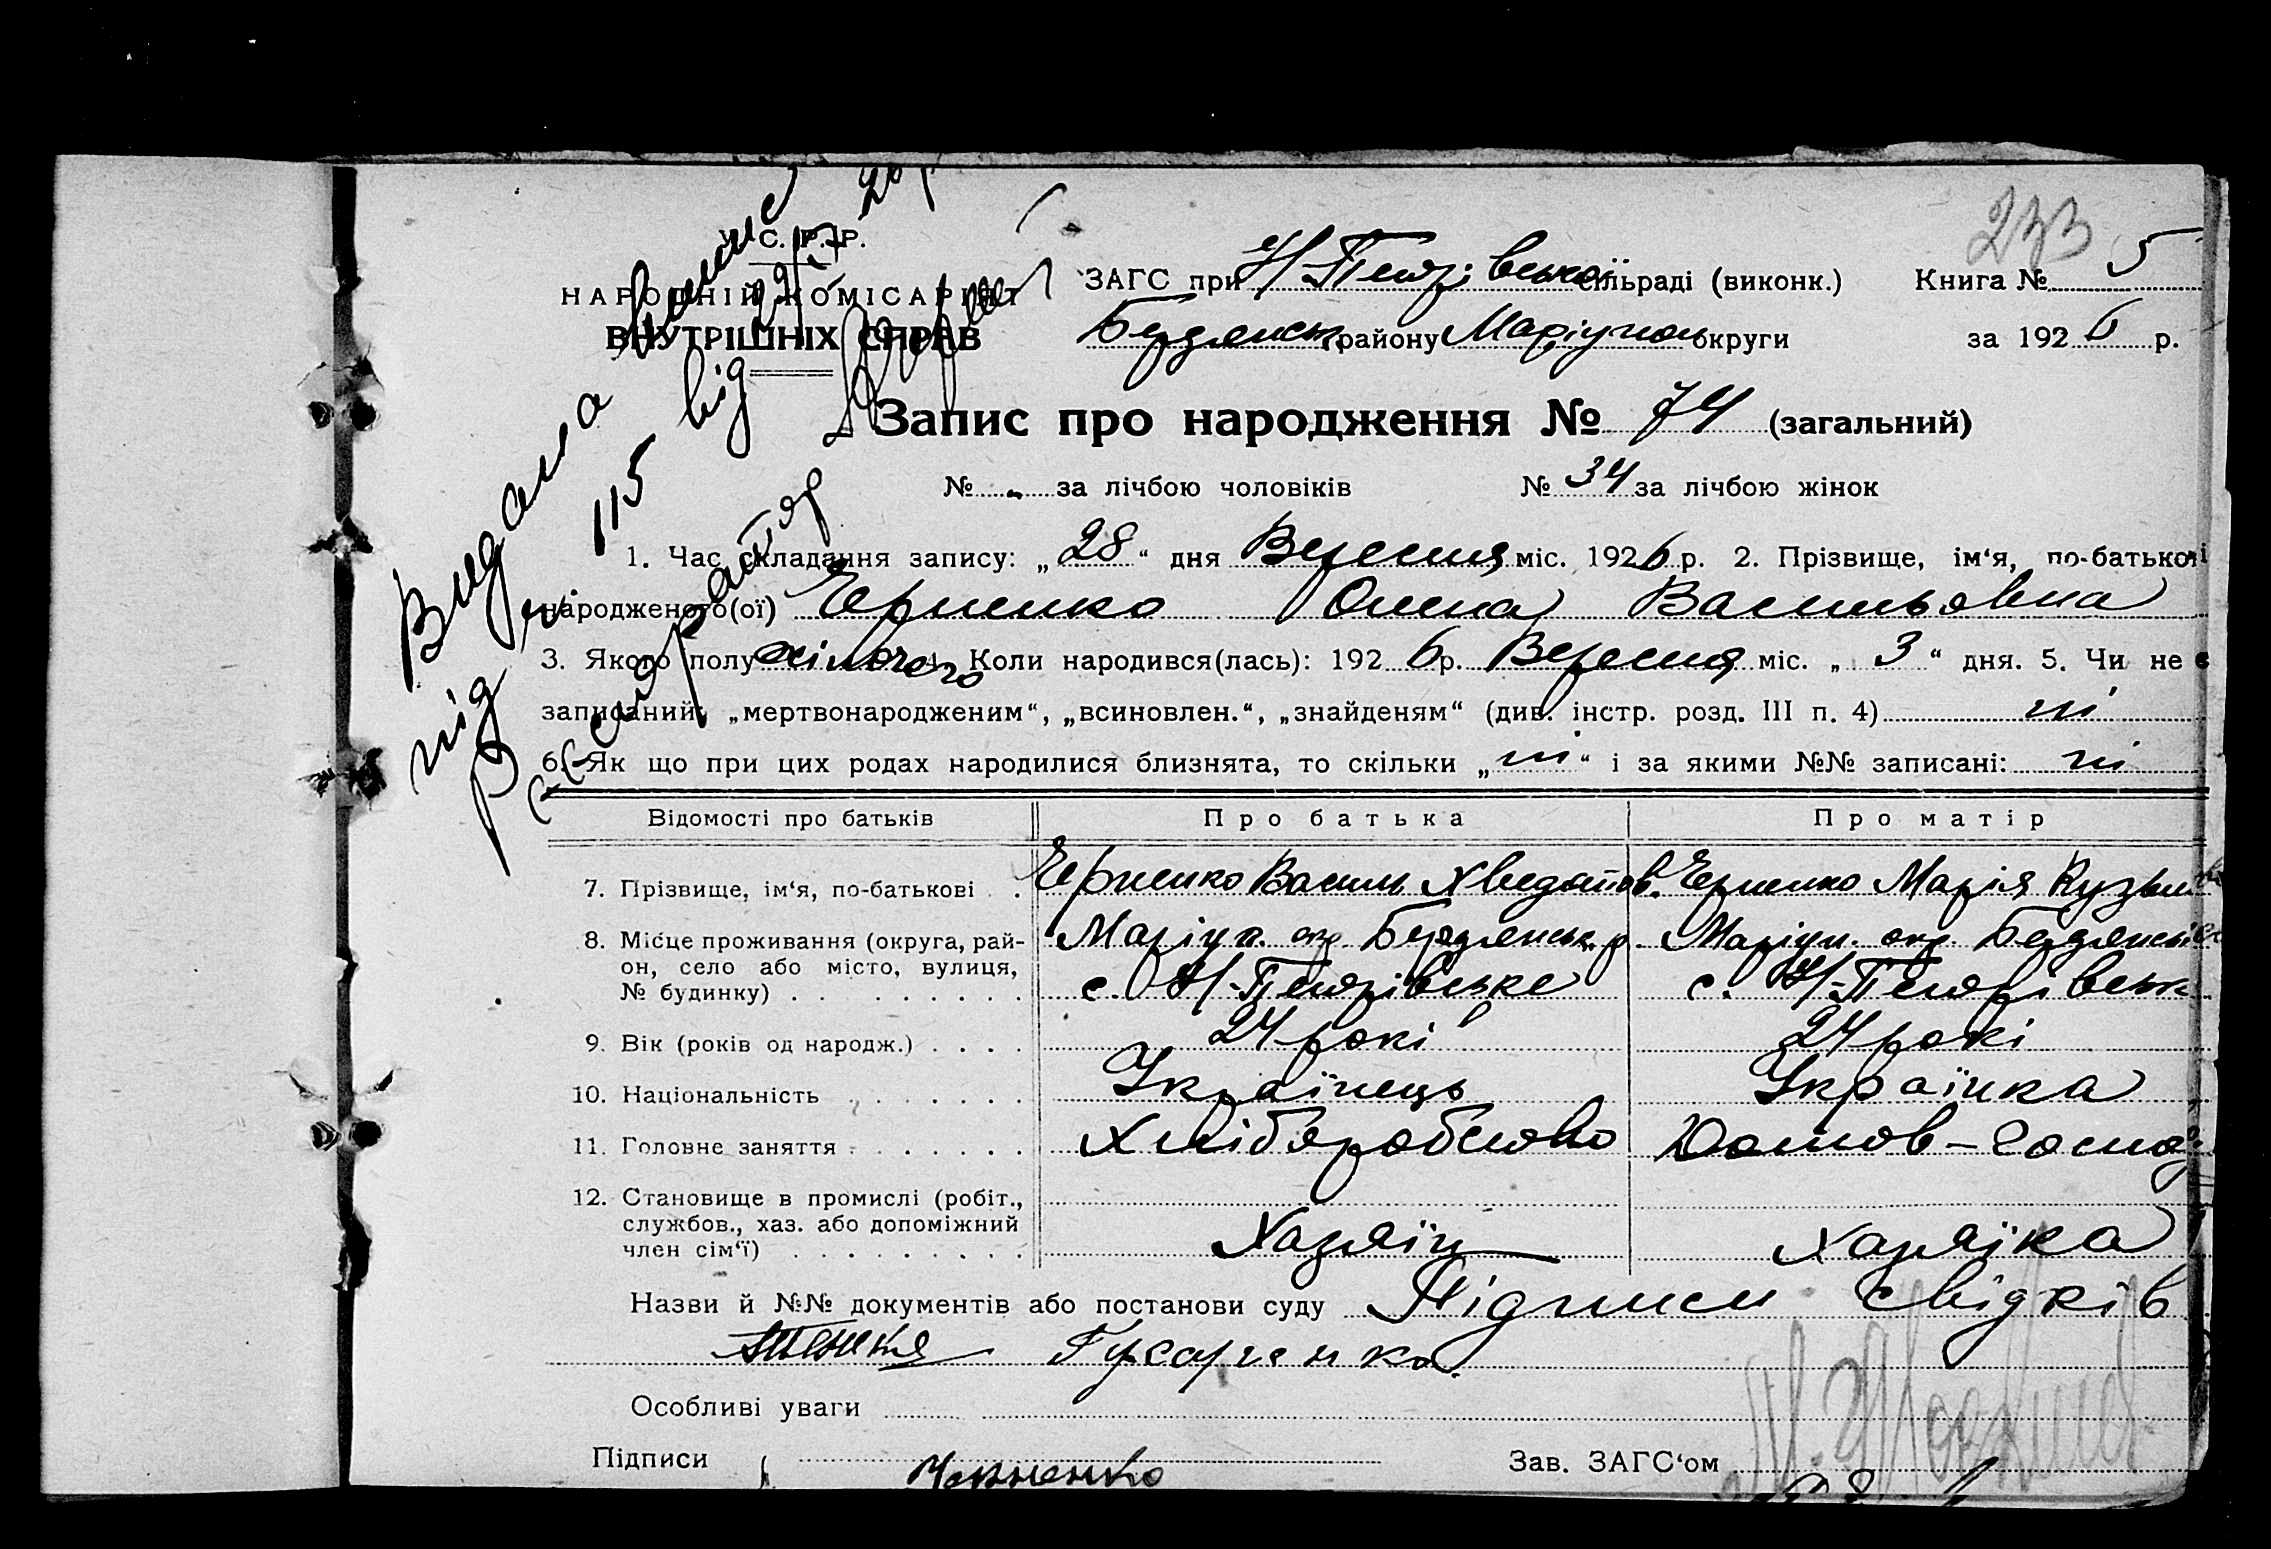 233
У. С. Р. Р.
НАРОДНІЙ КОМІСАРІЯТ
ВНУТРІШНІХ СПРАВ
ЗАГС при Н-Петрівської сільраді (виконк.) Книга № 5
Бердянськ району Маріупол округи за 1926 р.
Видана
під № 115 від
Запис про народження № 74 (загальний)
№ - за лічбою чоловіків № 34 за лічбою жінок
1. Час складання запису: „28“ дня Вересня міс. 1926 р. 2. Прізвище, ім‘я, по-батькові
народженого(ої) Черненко Олена Васильовна
3. Якого полу жіночого 4. Коли народився(лась): 1926 р. Вересня міс. „3“ дня. 5. Чи не є
записаний: „мертвонародженим“, „всиновлен.“, „знайденям“ (див. інстр. розд. III п. 4) ні
6. Як що при цих родах народилися близнята, то скільки „ні“ і за якими №№ записані: ні
Відомості про батьків Про батька Про матір
7. Прізвище, ім‘я, по-батькові . . Черненко Василь Хведотов. Черненко Марія Кузьм
8. Місце проживання (округа, рай- Маріуп. окр Бердянськ. р Маріуп. окр. Бердянськ
он, село або місто, вулиця,
№ будинку) . . . . . . . . . с. Н-Петрівське с. Н-Петрівськ
9. Вік (років од народж.) . . . . 24 років 24 рокі
10. Національність . . . . . . . Українець Українка
11. Головне заняття . . . . . . . Хліборобство Домов-господ.
12. Становище в промислі (робіт.,
службов., хаз. або допоміжний
член сім‘ї) . . . . . . . . . Хазяїн хазяїка
Назви й №№ документів або постанови суду Підписи свідків
Гусаренко.
Особливі уваги
Підписи Черненко Зав. ЗАГС‘ом